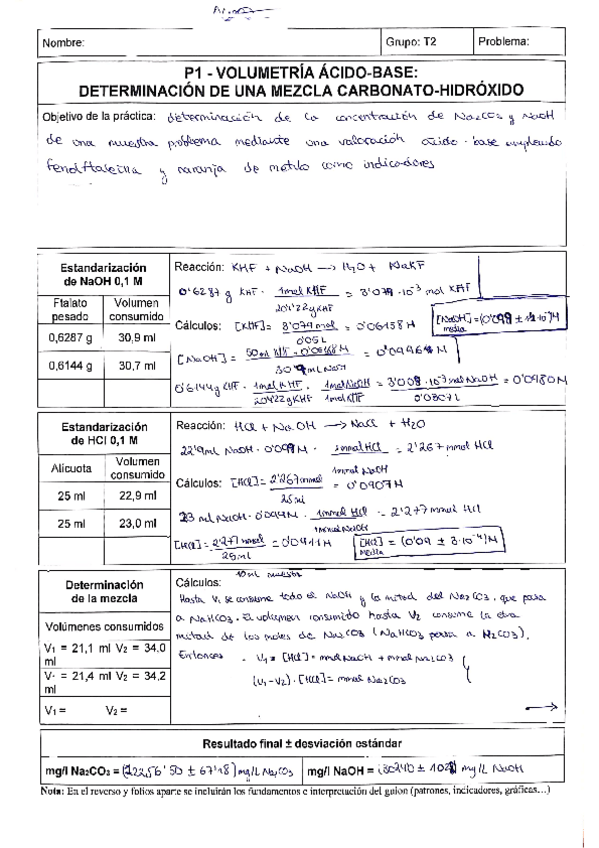 Nombre:
Grupo: T2
Problema:
P1 - VOLUMETRÍA ÁCIDO-BASE:
DETERMINACIÓN DE UNA MEZCLA CARBONATO-HIDRÓXIDO
Objetivo de la práctica: determinación de la concentración de Na2CO3 y NaOH
de una muestra problema mediante una valoración ácido-base empleando
fenolftaleína y naranja de metilo como indicadores
Estandarización
de NaOH 0,1 M
Ftalato pesado
Volumen consumido
0,6287 g
30,9 ml
0,6144 g
30,7 ml
Reacción: KHF + NaOH → H2O + NaKF
0'6287 g KHF · 1mol KHF / 204'22 g KHF = 3'079·10-3 mol KHF
Cálculos: [KHF] = 3'079 mol / 0'05L = 0'06158 M
[NaOH] = (0'098 ± M
media
[NaOH] = 50 ml KHF · 0'06158 M / 30'9 mL NaOH = 0'09964 M
0'6144 g KHF · 1mol KHF / 204'22 g KHF · 1mol NaOH / 1mol KHF = 3'008·10-3 mol NaOH / 0'0307L = 0'0980 M
Estandarización
de HCl 0,1 M
Alícuota
Volumen consumido
25 ml
22,9 ml
25 ml
23,0 ml
Reacción: HCl + NaOH → NaCl + H2O
22'9 ml NaOH · 0'099 M · 1mmol HCl / 1mmol NaOH = 2'267 mmol HCl
Cálculos: [HCl] = 2'267 mmol / 25 ml = 0'0907 M
23 ml NaOH · M · 1mmol HCl / 1mmol NaOH = 2'277 mmol HCl
[HCl] = 2'277 mmol / 25 ml = 0'0911 M
[HCl] = (0'09 ± 3·10-4) M
media
Determinación
de la mezcla
Volúmenes consumidos
V1 = 21,1 ml V2 = 34,0 ml
V1 = 21,4 ml V2 = 34,2 ml
V1 = V2 =
Cálculos:
10 ml muestra
Hasta V1 se consume todo el NaOH y la mitad del Na2CO3, que pasa
a NaHCO3. El volumen consumido hasta V2 consume la otra
mitad de los moles de Na2CO3 (NaHCO3 pasa a H2CO3).
Entonces - V1 · [HCl] = mmol NaOH + mmol Na2CO3
(V1-V2) · [HCl] = mmol Na2CO3
Resultado final ± desviación estándar
mg/l Na2CO3 = (12256'50 ± 67'18) mg/L Na2CO3
mg/l NaOH = ( ± ) mg/L NaOH
Nota: En el reverso y folios aparte se incluirán los fundamentos e interpretación del guion (patrones, indicadores, gráficas…)